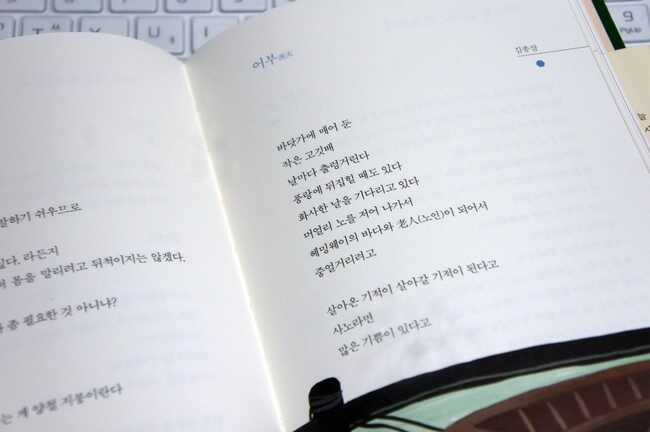 말하기 쉬우므로
라든지
몸을 말리려고 뒤척이지는 않겠다.
좀 필요한 것 아니냐?
는 게 양철 지붕이란다
어부 漁夫
김종삼
바닷가에 매어 둔
작은 고깃배
날마다 출렁거린다
풍랑에 뒤집힐 때도 있다
화사한 날을 기다리고 있다
머얼리 노를 저어 나가서
헤밍웨이의 바다와 老人(노인)이 되어서
중얼거리려고
살아온 기적이 살아갈 기적이 된다고
사노라면
많은 기쁨이 있다고
늘
9
PgUp